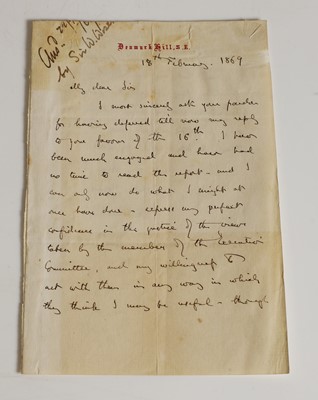 Denmark Hill, S.E.
Ansd.
by Sir W.
18th February. 1869
My dear Sir
I most sincerely ask your pardon
for having deferred till now my reply
to your favour of the 16th. I have
been much engaged and have had
no time to read the report - and I
can only now do what I might at
once have done - express my perfect
confidence in the justice of the views
taken by the members of the executive
Committee, and my willingness to
act with them in any way in which
they think I may be useful - though